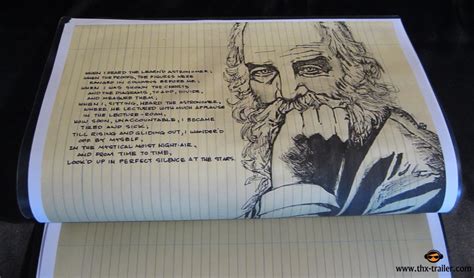 WHEN I HEARD THE LEARN'D ASTRONOMER;
WHEN THE PROOFS, THE FIGURES WERE
RANGED IN COLUMNS BEFORE ME;
WHEN I WAS SHOWN THE CHARTS
AND THE DIAGRAMS, TO ADD, DIVIDE,
AND MEASURE THEM;
WHEN I, SITTING, HEARD THE ASTRONOMER,
WHERE HE LECTURED WITH MUCH APPLAUSE
IN THE LECTURE-ROOM,
HOW SOON, UNACCOUNTABLE, I BECAME
TIRED AND SICK,
TILL RISING AND GLIDING OUT, I WANDER'D
OFF BY MYSELF,
IN THE MYSTICAL MOIST NIGHT-AIR,
AND FROM TIME TO TIME,
LOOK'D UP IN PERFECT SILENCE AT THE STARS.
www.thx-trailer.com